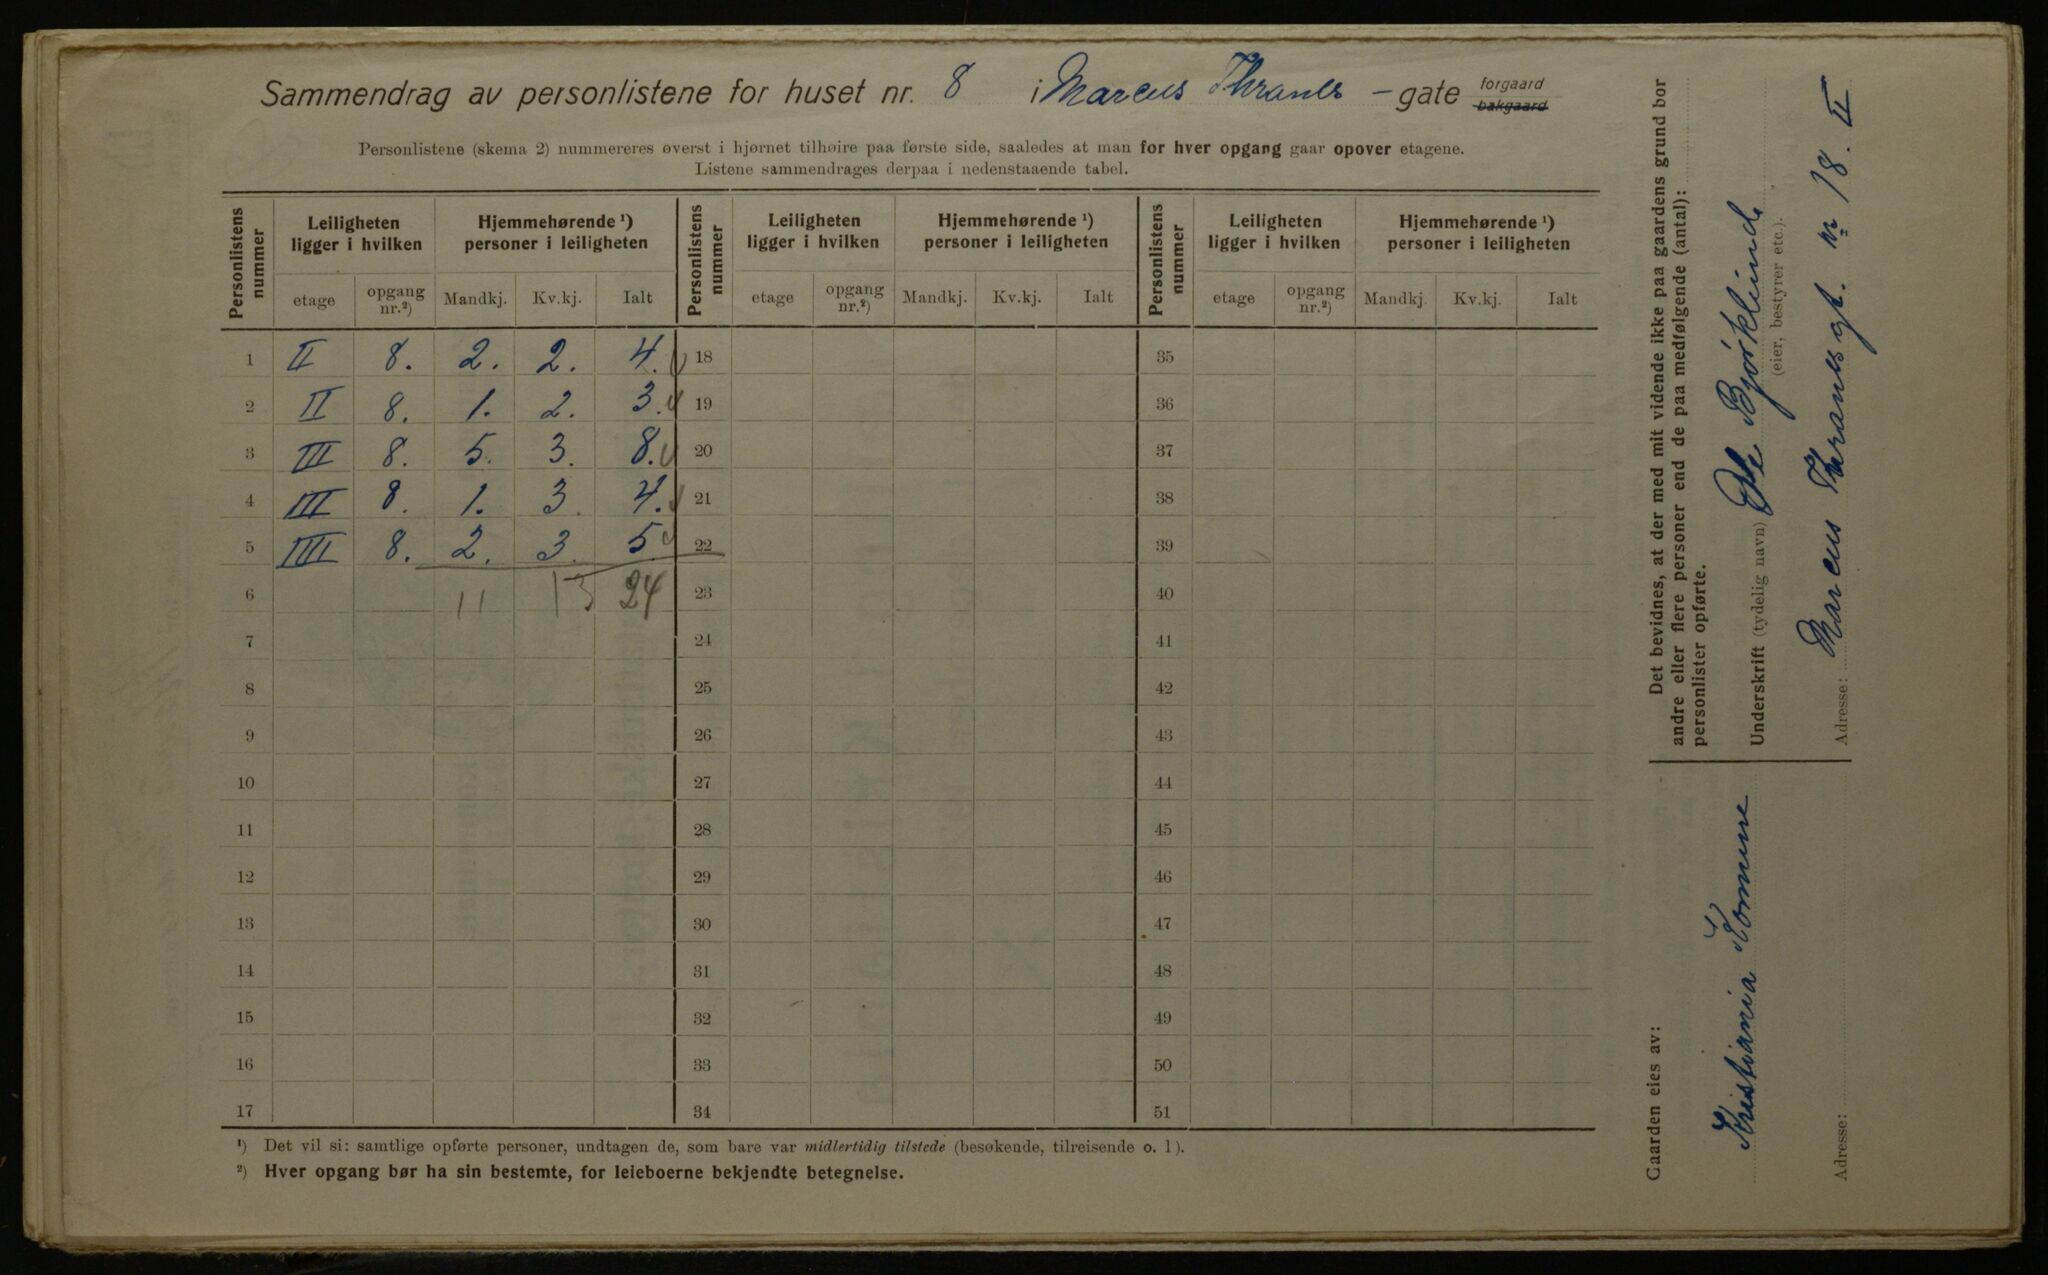 Sammendrag av personlistene for huset nr. 8 i Marcus Thranes - gate forgaard bakgaard
Personlistene (skema 2) nummereres øverst i hjørnet tilhøire paa første side, saaledes at man for hver opgang gaar opover etagene.
Listene sammendrages derpaa i nedenstaaende tabel.
Personlistens nummer Leiligheten ligger i hvilken Hjemmehørende ¹) personer i leiligheten Personlistens nummer Leiligheten ligger i hvilken Hjemmehørende ¹) personer i leiligheten Personlistens nummer Leiligheten ligger i hvilken Hjemmehørende ¹) personer i leiligheten
etage opgang nr.²) Mandkj. Kv.kj. Ialt etage opgang nr.²) Mandkj. Kv.kj. Ialt etage opgang nr.²) Mandkj. Kv.kj. Ialt
1 II 8. 2. 2. 4. 18 35
2 II 8. 1. 2. 3. 19 36
3 III 8. 5. 3. 8. 20 37
4 III 8. 1. 3. 4. 21 38
5 IIII 8. 2. 3. 5 22 39
6 11 13 24 23 40
7 24 41
8 25 42
9 26 43
10 27 44
11 28 45
12 29 46
13 30 47
14 31 48
15 32 49
16 33 50
17 34 51
¹) Det vil si: samtlige opførte personer, undtagen de, som bare var midlertidig tilstede (besøkende, tilreisende o. l).
²) Hver opgang bør ha sin bestemte, for leieboerne bekjendte betegnelse.
Det bevidnes, at der med mit vidende ikke paa gaardens grund bor
andre eller flere personer end de paa medfølgende (antal):
personlister opførte.
Underskrift (tydelig navn) Ole Bjørklund
(eier, bestyrer etc.).
Adresse: Marcus Thranesgt. nr 18. II
Gaarden eies av:
Kristiania Komune
Adresse: